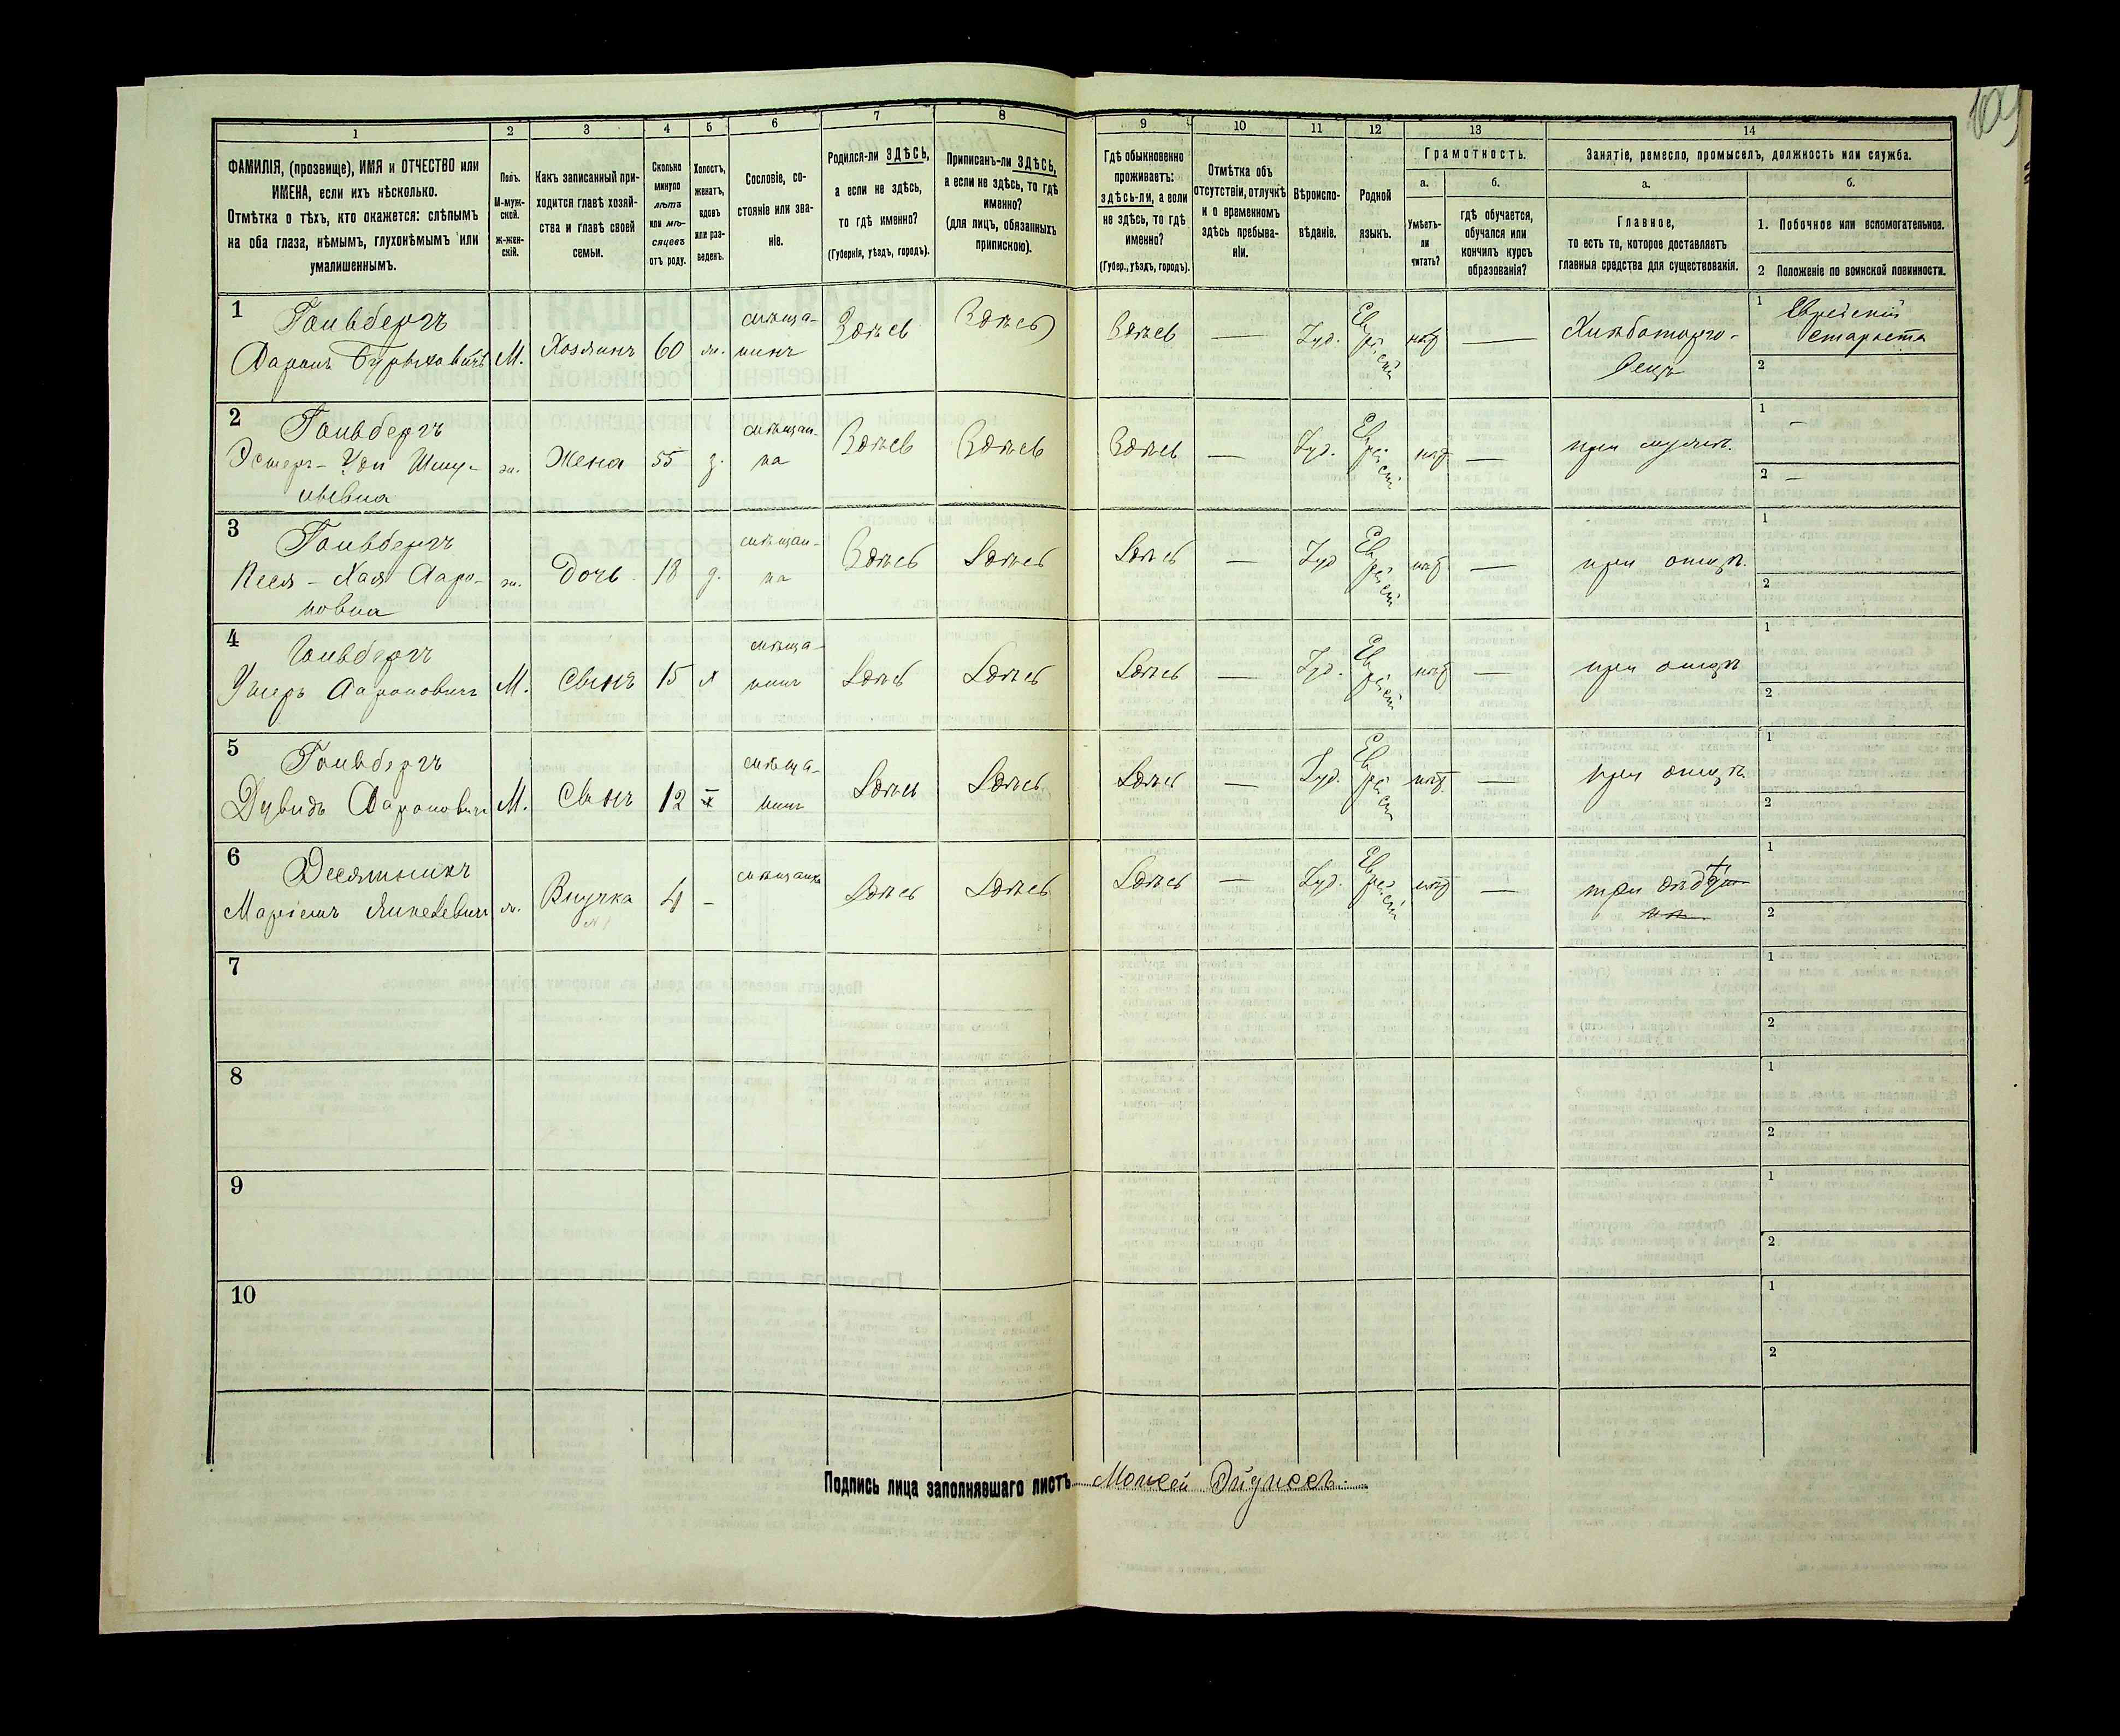 1 2 3 4 5 6 7 8 9 10 11 12 13 14
ФАМИЛІЯ, (прозвище), ИМЯ и ОТЧЕСТВО или
ИМЕНА, если ихъ нѣсколько.
Отмѣтка о тѣхъ, кто окажется: слѣпымъ
на оба глаза, нѣмымъ, глухонѣмымъ или
умалишеннымъ.
Полъ.
М-муж-
ской.
ж-жен-
скій.
Какъ записанный при-
ходится главѣ хозяй-
ства и главѣ своей
семьи.
Сколько
минуло
лѣтъ
или мѣ-
сяцевъ
отъ роду.
Холостъ,
женатъ,
вдовъ
или раз-
веденъ.
Сословіе, со-
стояніе или зва-
ніе.
Родился-ли ЗДѢСЬ,
а если не здѣсь,
то гдѣ именно?
(Губернія, уѣздъ, городъ).
Приписанъ-ли ЗДѢСЬ,
а если не здѣсь, то гдѣ
именно?
(для лицъ, обязанныхъ
припискою).
Гдѣ обыкновенно
проживаетъ:
здѣсь-ли, а если
не здѣсь, то гдѣ
именно?
(Губер., уѣздъ, городъ).
Отмѣтка объ
отсутствіи, отлучкѣ
и о временномъ
здѣсь пребыва-
ніи.
Вѣроиспо-
вѣданіе.
Родной
языкъ.
Грамотность.
а.
Умѣетъ-
ли
читать?
б.
гдѣ обучается,
обучался или
кончилъ курсъ
образованія?
Занятіе, ремесло, промыселъ, должность или служба.
а.
Главное,
то есть то, которое доставляетъ
главныя средства для существованія.
б.
1. Побочное или вспомогательное.
2 Положеніе по воинской повинности.
1
Гольдбергъ
Ааронъ
М. Хозяинъ 60 ж. мѣща-
нинъ
Здѣсь Здѣсь Здѣсь — Іуд. Еврейскій нѣт — Хлѣботорго-
вецъ
1 Еврейскій
староста
2
2
Гольдбергъ
ж. Жена 55 з. мѣщан-
ка
Здѣсь Здѣсь Здѣсь — Іуд. Еврейскій нѣт — при мужѣ.
1 —
2 —
3
Гольдбергъ
Песя-Хая Ааро-
новна
ж. Дочь 18 д. мѣщан-
ка
Здѣсь Здѣсь Здѣсь — Іуд Еврейскій нѣт — при отцѣ.
1
2
4
Гольдбергъ
Ушеръ Аароновичъ
М. Сынъ 15 х мѣща-
нинъ
Здѣсь Здѣсь Здѣсь — Іуд. Еврейскій нѣт — при отцѣ
1
2
5
Гольдбергъ
Дувидъ Аароновичъ
М. Сынъ 12 х мѣща-
нинъ
Здѣсь Здѣсь Здѣсь — Іуд. Еврейскій нѣт. — при отцѣ
1
2
6
Десятникъ
Внучка 4 — мѣщанка
Здѣсь Здѣсь Здѣсь — Іуд. Еврейскій нѣт — при
1
2
7
1
2
8
1
2
9
1
2
10
1
2
Подпись лица заполнявшаго листъ Моисей